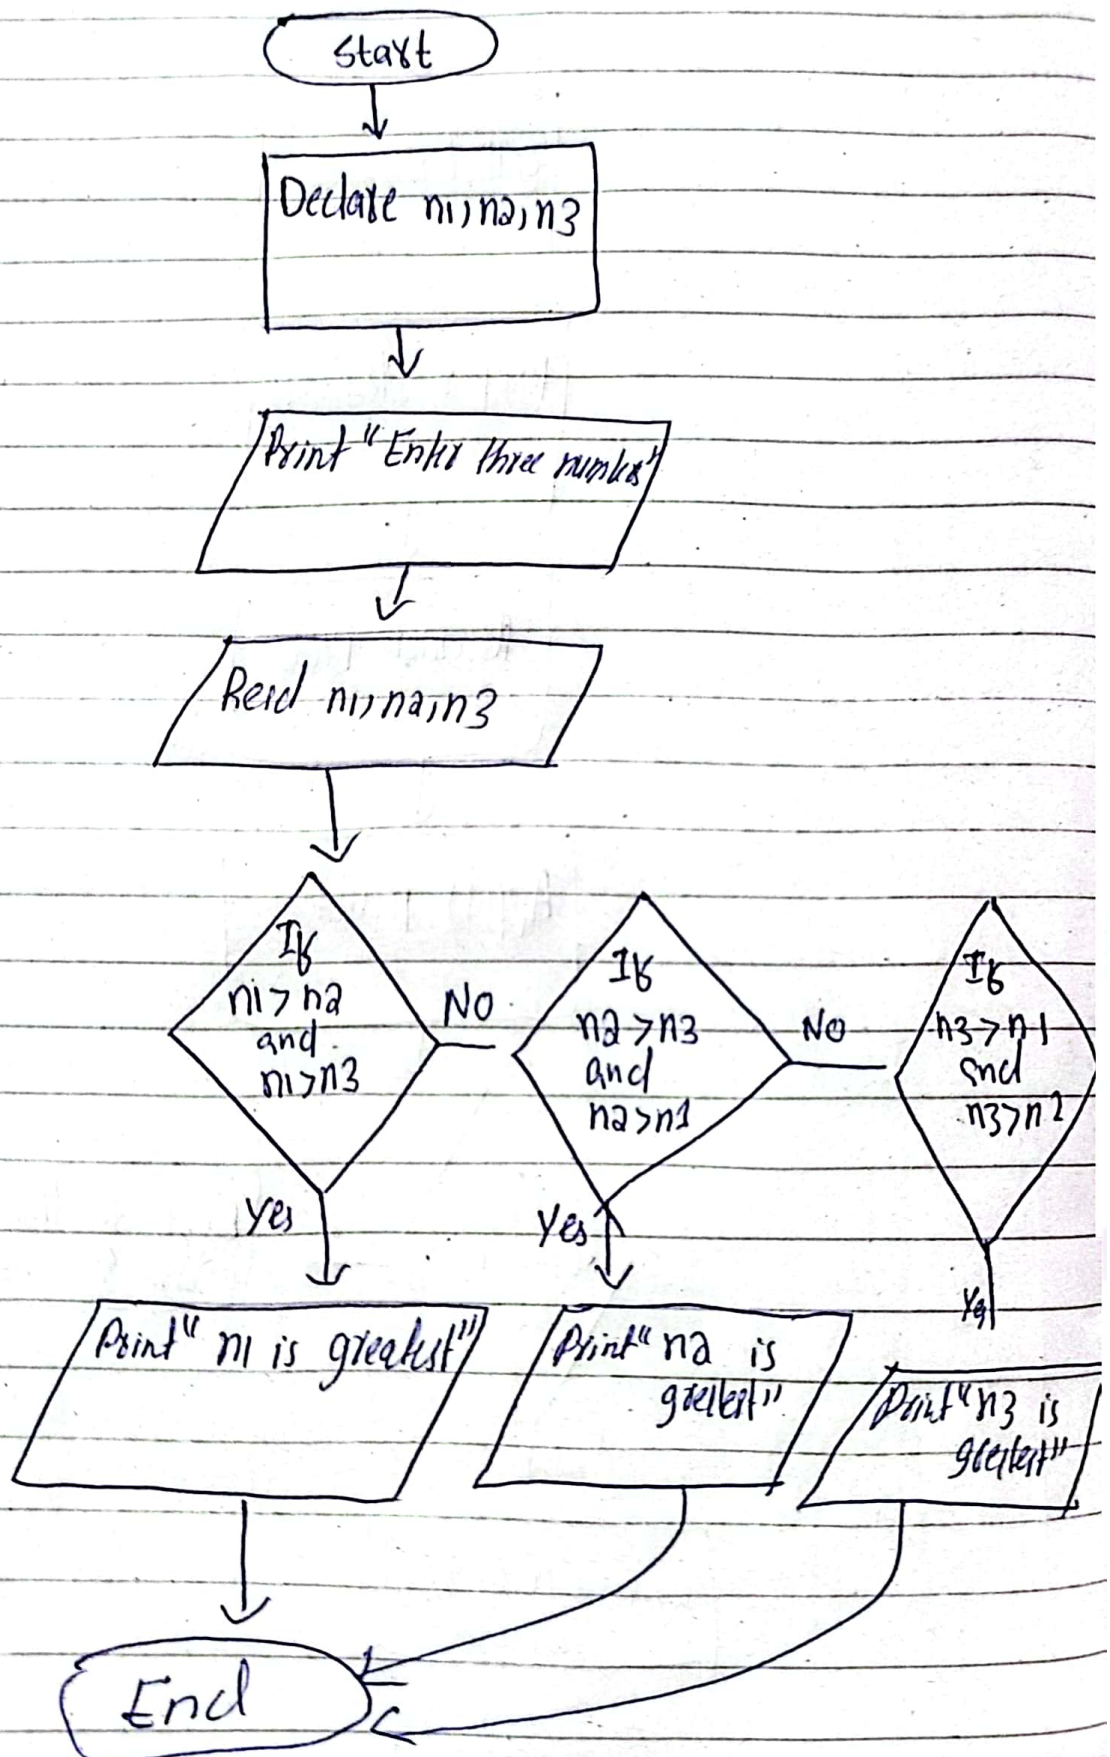 Start
Declare n1, n2, n3
Print "Enter three number"
Read n1, n2, n3
If
n1 > n2
and
n1 > n3
NO
If
n2 > n3
and
n2 > n1
NO
If
n3 > n1
and
n3 > n2
Yes
Yes
Yes
Print "n1 is greatest"
Print "n2 is
greatest"
Print "n3 is
greatest"
End